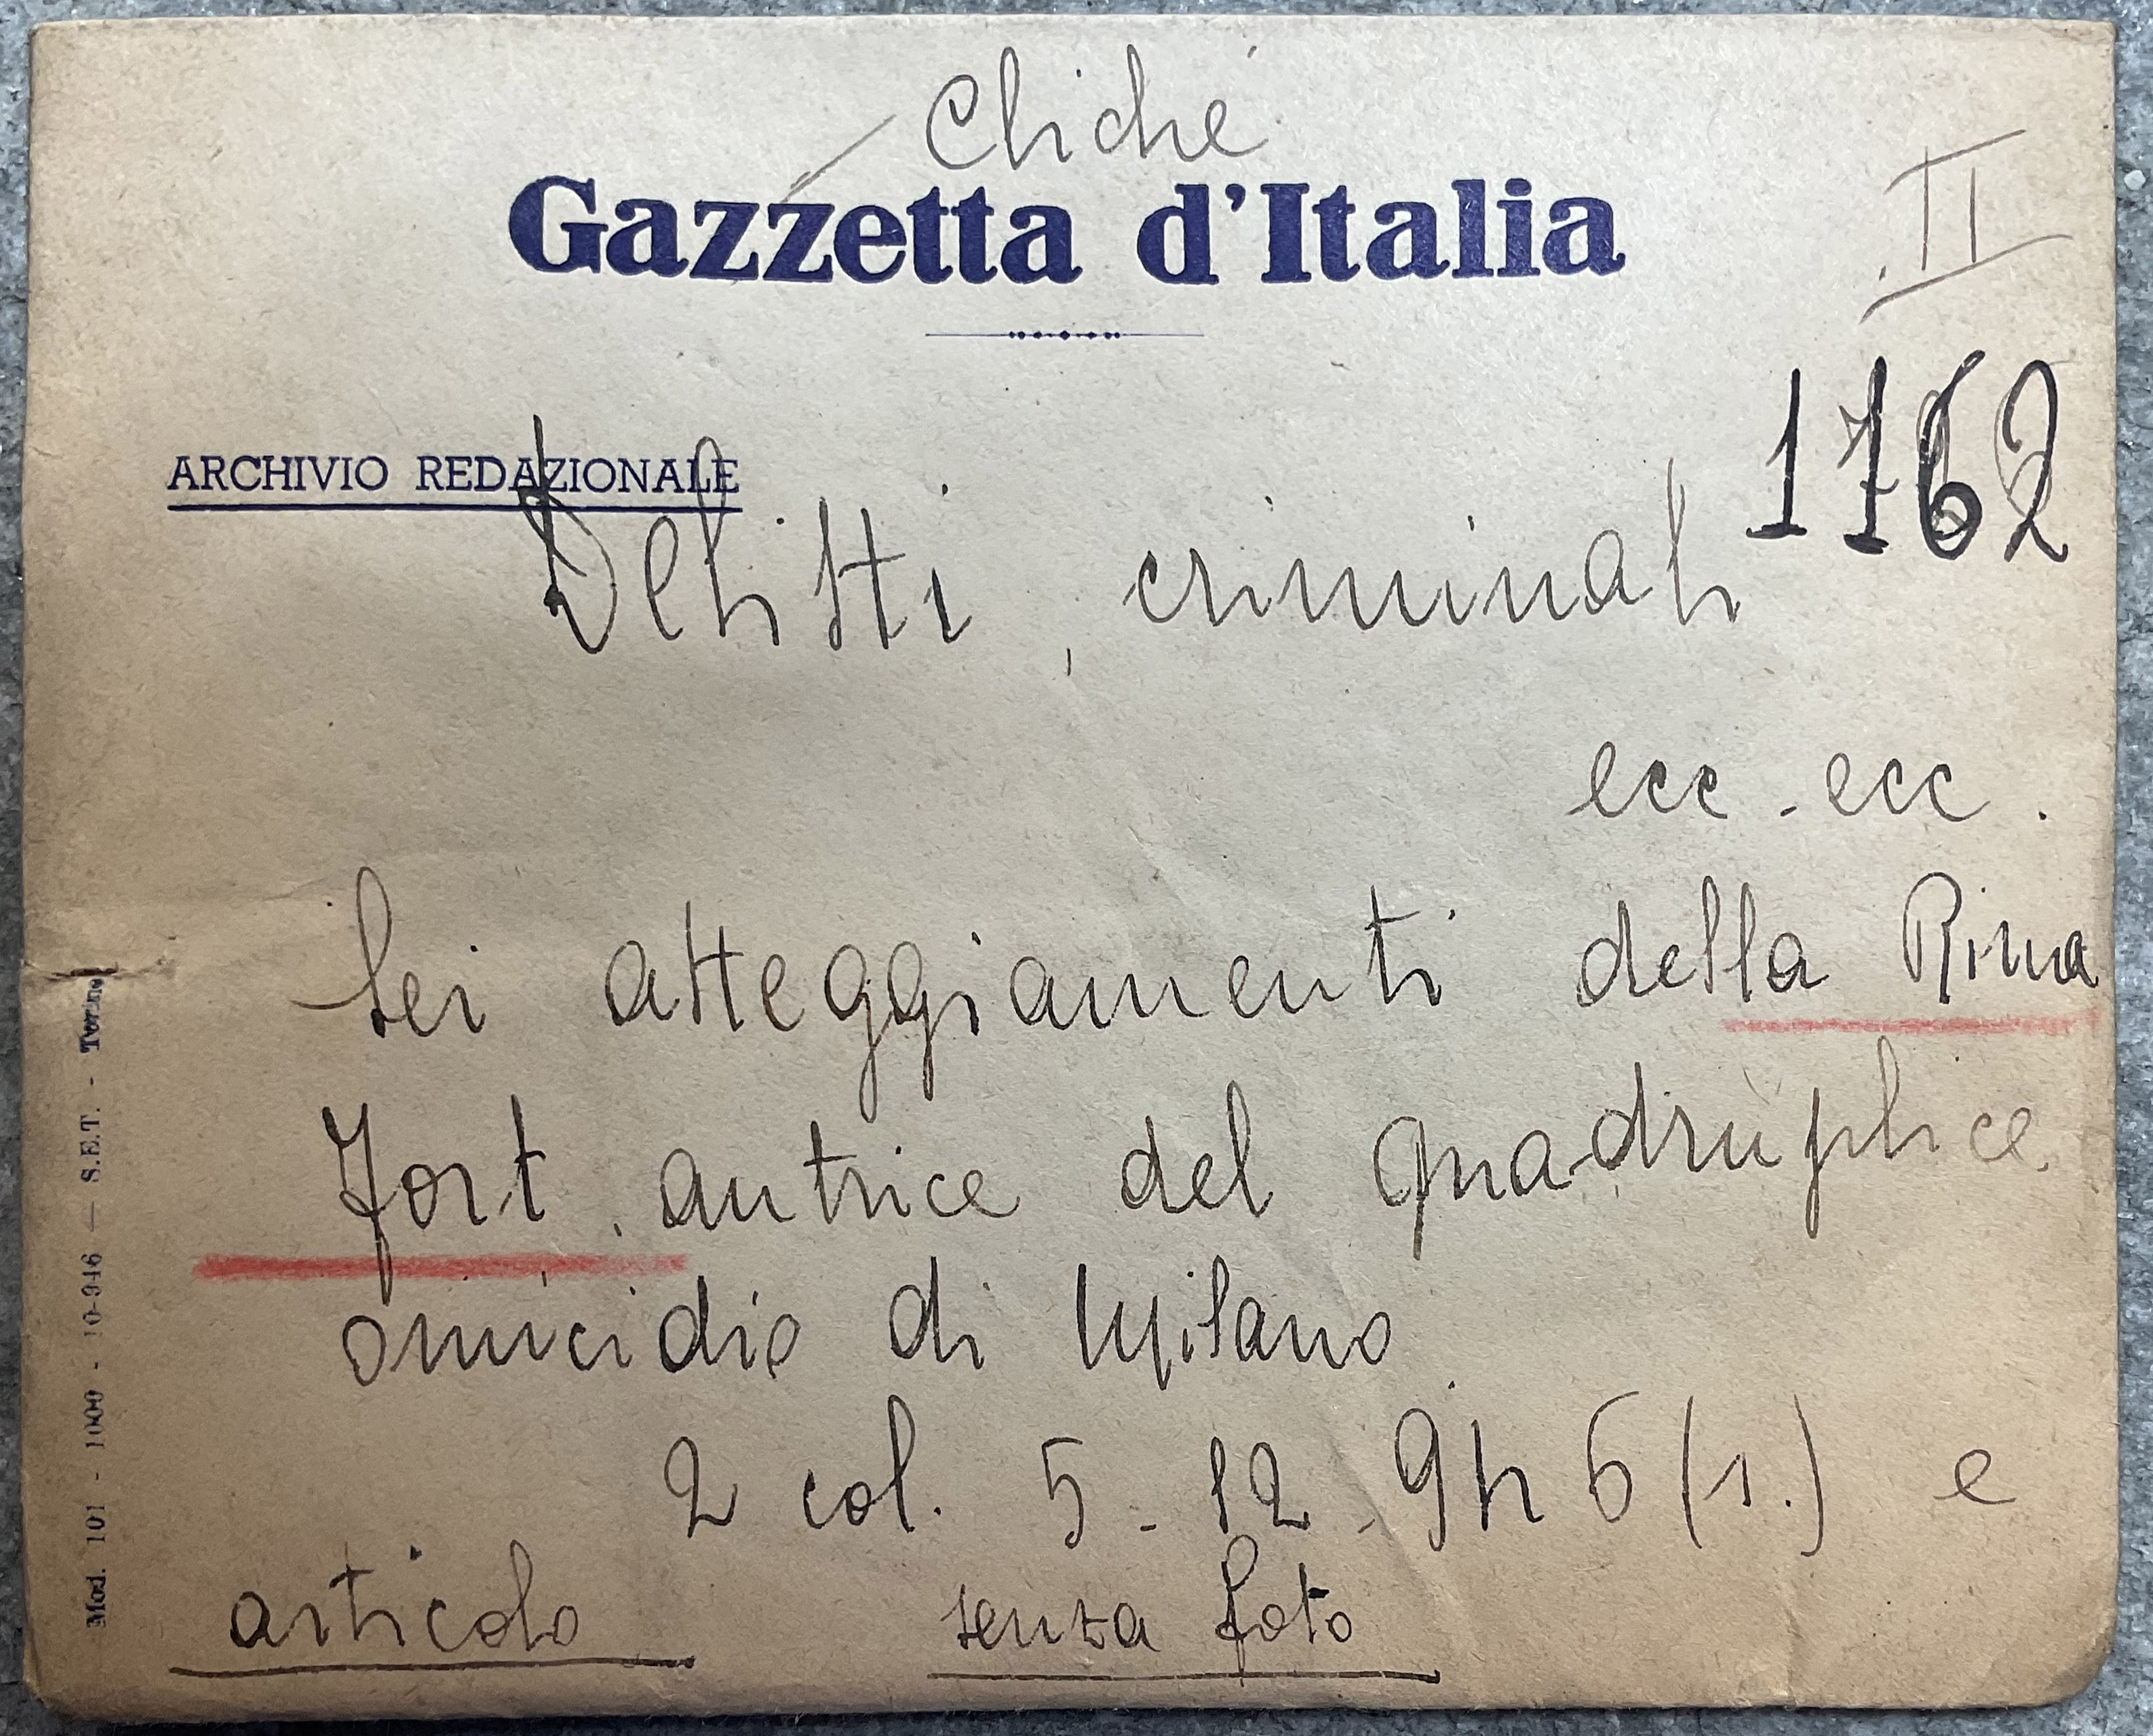 Cliché
Gazzetta d'Italia
II
1762
ARCHIVIO REDAZIONALE
Delitti, criminali
ecc. ecc.
Sei atteggiamenti della Rina
Fort, autrice del quadruplice
omicidio di Milano
2 col. 5-12-946 (1.) e
articolo senza foto
Mod. 101 - 1000 - 10-946 — S.E.T. - Torino